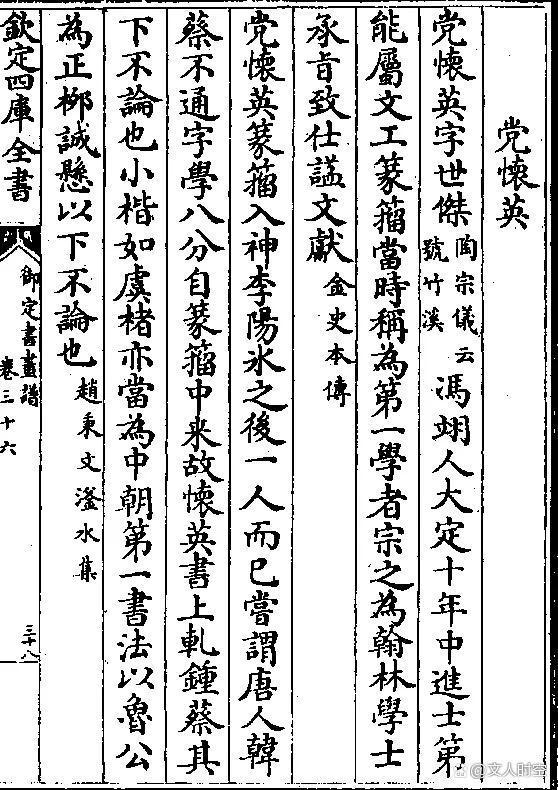 党懷英
党懷英字世傑陶宗儀云號竹溪馮翊人大定十年中進士第
能屬文工篆籀當時稱為第一學者宗之為翰林學士
承旨致仕諡文獻金史本傳
党懷英篆籀入神李陽冰之後一人而已嘗謂唐人韓
蔡不通字學八分自篆籀中来故懷英書上軋鍾蔡其
下不論也小楷如虞褚亦當為中朝第一書法以魯公
為正栁誠懸以下不論也趙秉文滏水集
欽定四庫全書
御定書畫譜
卷三十六
三十八
@文人时空